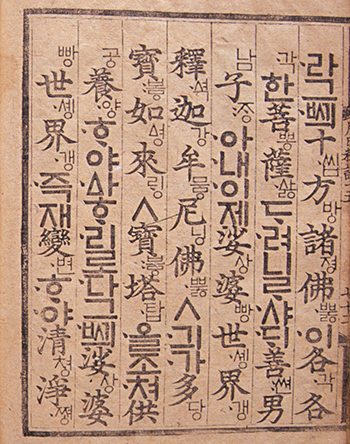 라그ᄢᅴ十씹方방諸졍佛뿛이各각各
각한菩뽕薩삻ᄃᆞ려니ᄅᆞ샤ᄃᆡ善쎤男
남子ᄌᆞᆼ아내이제娑상婆빵世솅界갱
釋셕迦강牟뭏尼닝佛뿛ㅅ긔가多당
寶봏如ᅀᅧᆼ來ᄅᆡᆼㅅ寶봏塔탑ᄋᆞᆯ조쳐供
공養양ᄒᆞ야ᅀᅡᄒᆞ리로다그ᄢᅴ娑상婆
빵世솅界갱즉재變변ᄒᆞ야淸쳥淨쪙